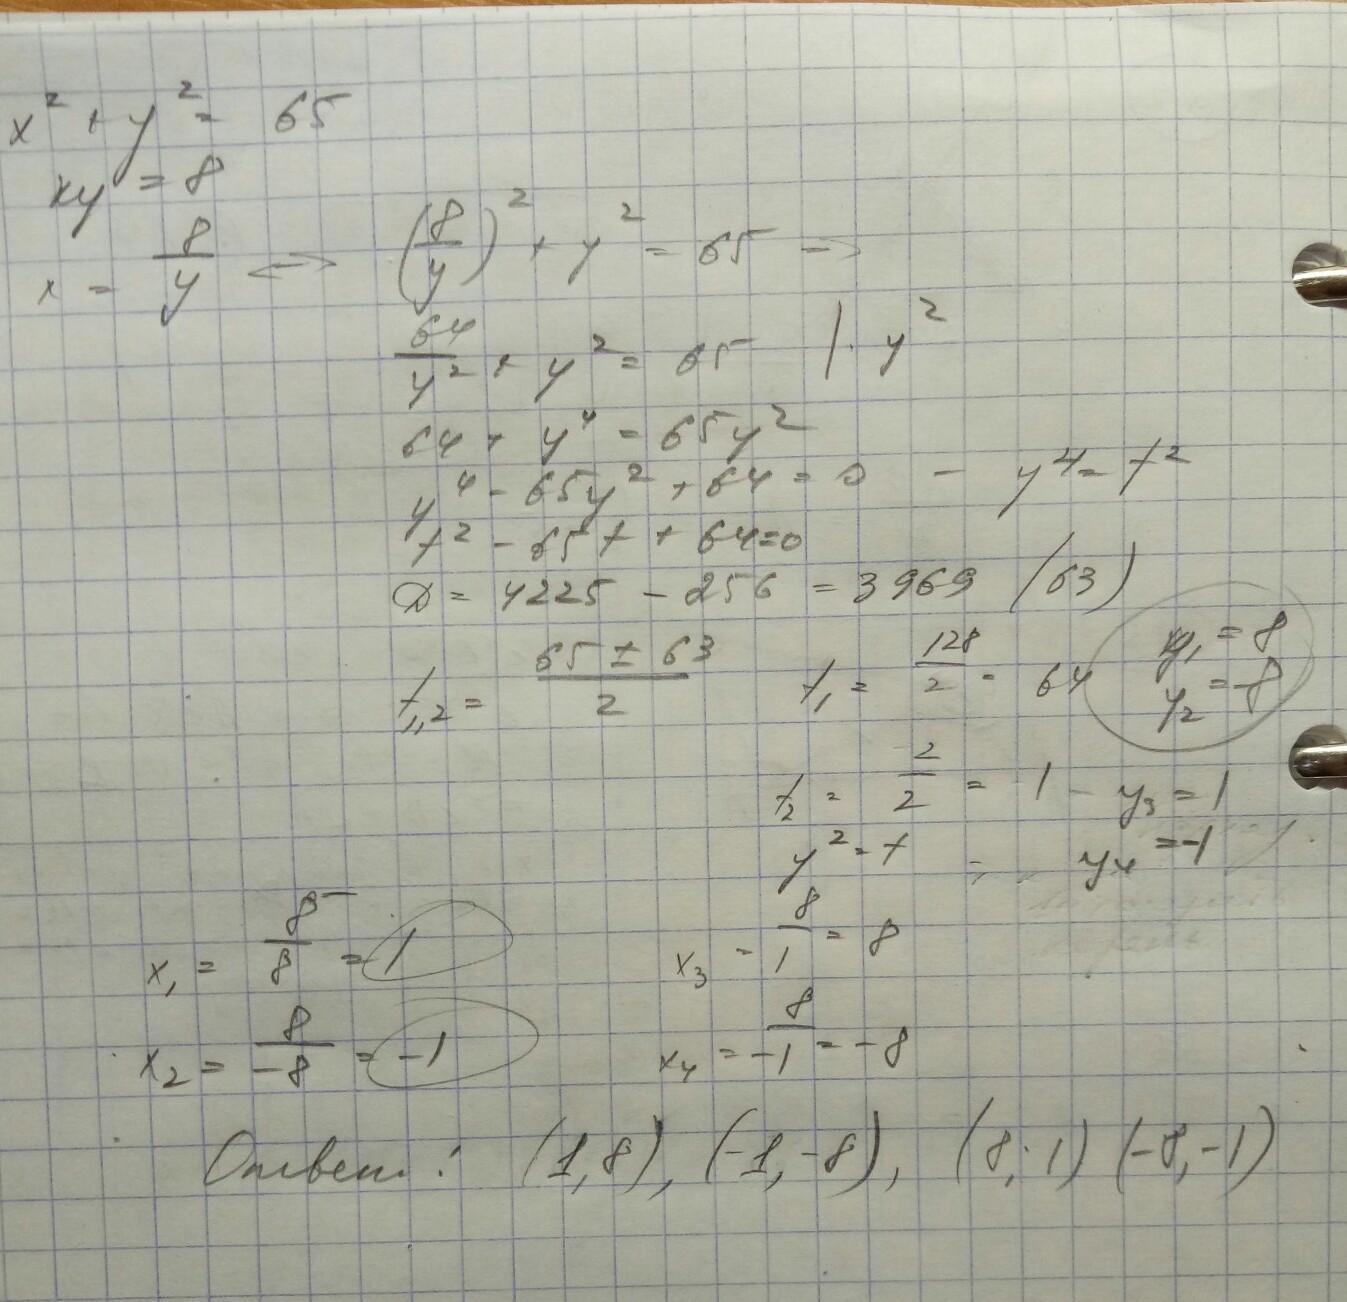 x² + y² = 65
xy = 8
x = 8/y <-> (8/y)² + y² = 65 ->
64/y² + y² = 65 | · y²
64 + y⁴ = 65y²
y⁴ - 65y² + 64 = 0 - y⁴ = t²
t² - 65t + 64 = 0
D = 4225 - 256 = 3969 (63)
t₁,₂ = (65 ± 63)/2 t₁ = 128/2 = 64 y₁ = 8
y₂ = -8
t₂ = 2/2 = 1 - y₃ = 1
y² = t y₄ = -1
x₁ = 8/8 = 1 x₃ = 8/1 = 8
x₂ = 8/-8 = -1 x₄ = 8/-1 = -8
Ответ: (1, 8), (-1, -8), (8; 1) (-8, -1)